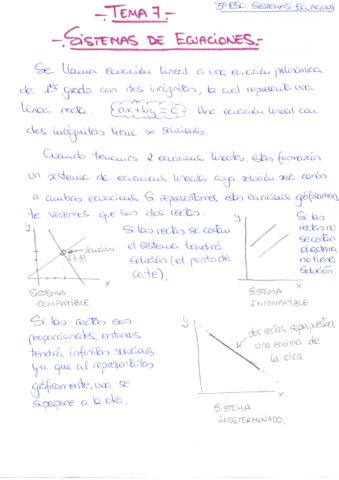 - TEMA 7 -
3º ESO. SISTEMAS ECUACIONES
- SISTEMAS DE ECUACIONES.-
Se llama ecuación lineal a una ecuación polinómica
de 1er grado con dos incógnitas, la cual representa una
línea recta. {ax+by=c}. Una ecuación lineal con
dos incógnitas tiene ∞ soluciones.
Cuando tenemos 2 ecuaciones lineales, estas formarán
un sistema de ecuaciones lineales cuya solución será común
a ambas ecuaciones. Si representamos estas ecuaciones gráficamen
te veremos que son dos rectas.
y
solución
x
SISTEMA
COMPATIBLE
Si las rectas se cortan
el sistema tendrá
solución (el punto de
corte).
y
x
SISTEMA
INCOMPATIBLE
Si las
rectas no
se cortan
el sistema
no tiene
solución.
Si las rectas son
proporcionales, entonces
tendrá infinitas soluciones
ya que al representarlas
gráficamente, una se
superpone a la otra.
y
dos rectas superpuestas
una encima de
la otra
x
SISTEMA
INDETERMINADO.